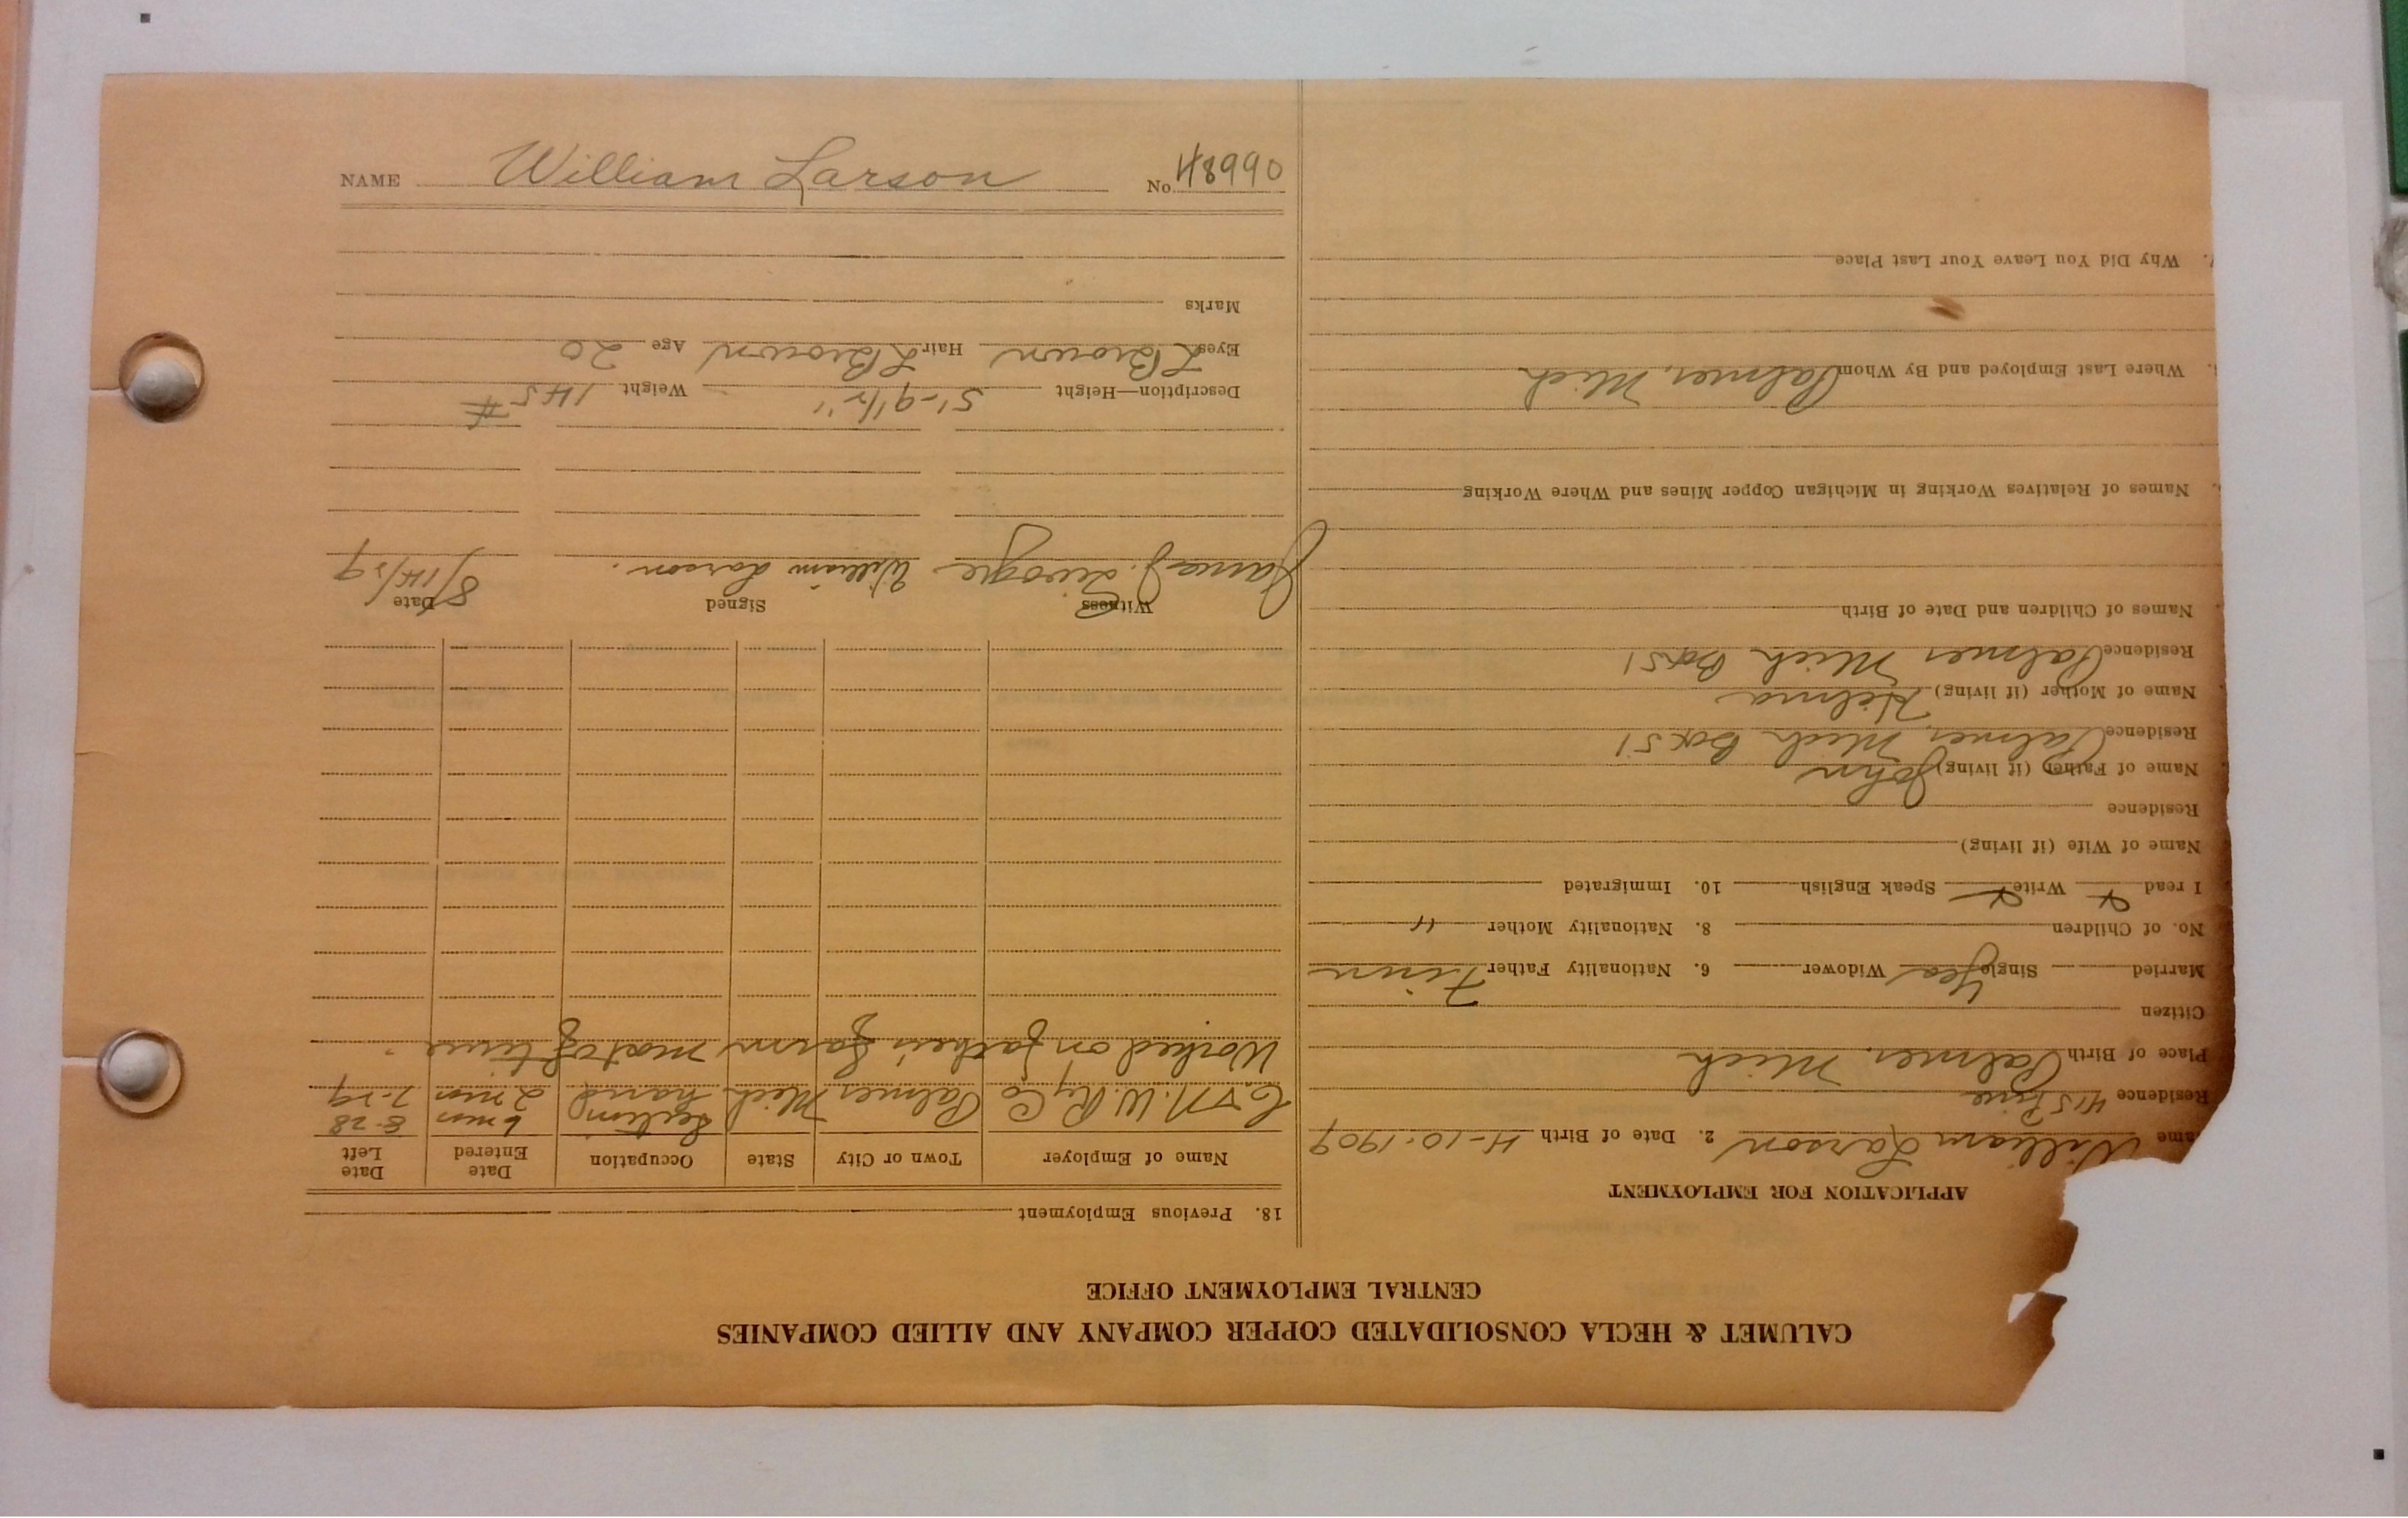 CALUMET & HECLA CONSOLIDATED COPPER COMPANY AND ALLIED COMPANIES
CENTRAL EMPLOYMENT OFFICE
APPLICATION FOR EMPLOYMENT
ame William Larson 2. Date of Birth 4-10-1909
Residence 415 Pine
Place of Birth Palmer, Mich
Citizen
Married Single Yes Widower 6. Nationality Father Finn
No. of Children 8. Nationality Mother "
I read x Write x Speak English 10. Immigrated
Name of Wife (if living)
Residence
Name of Father (if living) John
Residence Palmer, Mich Box 51
Name of Mother (if living) Hilma
Residence Palmer Mich Box 51
Names of Children and Date of Birth
Names of Relatives Working in Michigan Copper Mines and Where Working
Where Last Employed and By Whom Palmer, Mich
Why Did You Leave Your Last Place
18. Previous Employment
Name of Employer Town or City State Occupation Date Entered Date Left
C & N. W. Ry Co Palmer Mich Section hand 6 mos 8-28
2 mos 7-29
Worked on father's farm most of time.
Witness Signed Date
James J. William Larson. 8/14/29
Description—Height 5'-9 1/2" Weight 145 #
Eyes L Brown Hair L Brown Age 20
Marks
NAME William Larson No. 48990